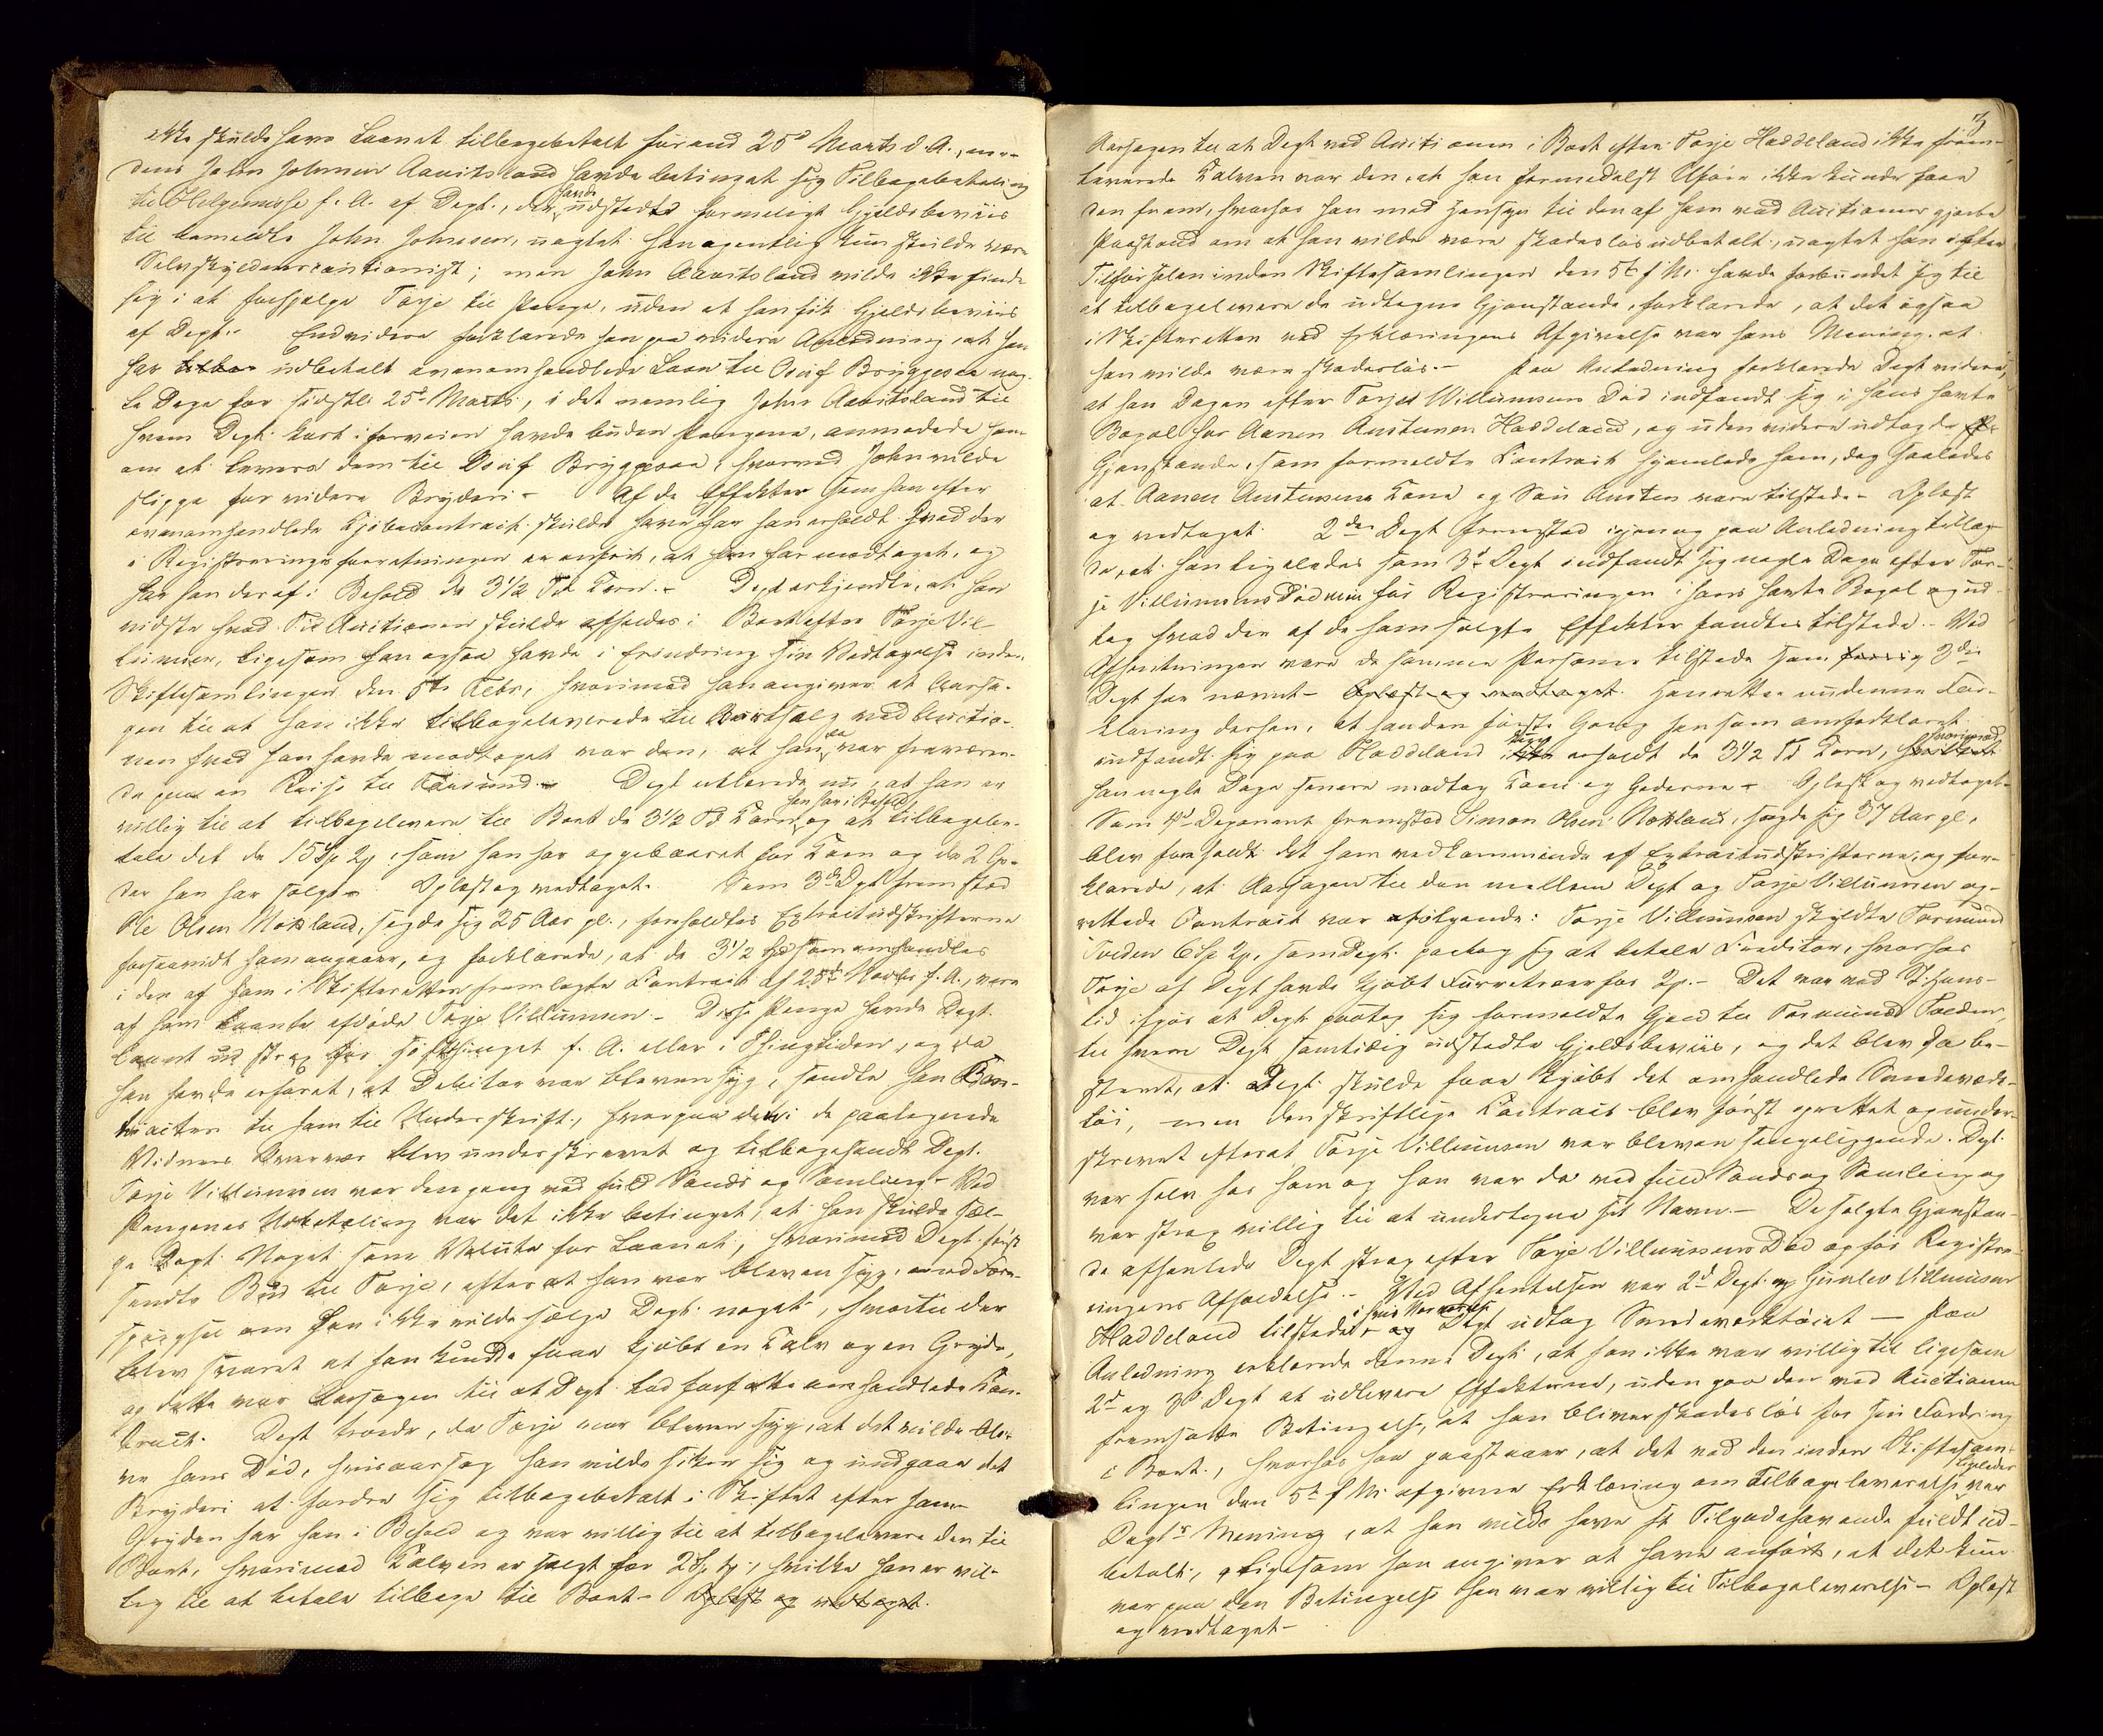 ikke skulde have Laanet tilbagebetalt førend 25d Marts d. A., me-
dens John Johnsen Aavitsland havde betinget sig Tilbagebetaling
til Helgemesse f. A. af Degt., der havde udstedt formeligt Gjeldsbeviis
til bemeldte John Johnsen, uagtet han egentlig kun skulde være
Selvskyldnercautionist; men John Aavitsland vilde ikke finde
sig i at forhjælpe Torje til Penge, uden at han fik Gjeldsbeviis
af Degt. Endvidere forklarede han paa videre Anledning, at han
har udbetalt ovenomhandlede Laan til Osuf Bryggesaa nog-
le Dage før sidstl. 25d Marts, i det nemlig John Aavitsland til
hvem Degt. kort i forveien havde buden Pengene, anmodede ham
om at levere dem til Osuf Bryggesaa, hvorved John vilde
slippe for videre Bryderi. Af de Effekter som han efter
ovenomhandlede Kjøbecontract skulde have har han erholdt hvad der
i Registreringsforretningen er anført, at han har modtaget, og
har han deraf i Behold de 3 1/2 Td Korn. Degt erkjendte, at han
vidste hvad Tid Auctionen skulde afholdes i Boet efter Torje Vil-
lumsen, ligesom han ogsaa havde i Erindring sin Vedtagelse inden
Skiftesamlingen den 5te Febr., hvorimod han angiver at Aarsa-
gen til at han ikke tilbageleverede til Bortsalg ved Auctio-
nen hvad han havde modtaget var den, at han da var fraværen-
de paa en Reise til Farsund. Degt erklærede nu, at han er
villig til at tilbagelevere til Boet de 3 1/2 Td Korn han har i Behold, og at tilbagebe-
tale det de 15 Sp 2 som han har oppebaaret for Koen og de 2 Ge-
der han har solgt. Oplæst og vedtaget. Som 3d Degt fremstod
Ole Olsen Mosland, sagde sig 25 Aar gl., foreholdtes Extraktudskrifterne
forsaavidt ham angaar, og forklarede, at de 3 1/2 Spd som omhandles
i den af ham i Skifteretten fremlagte Contract af 25de Novbr f. A., vare
af ham laante afdøde Torje Villumsen. Disse Penge havde Degt.
laant ud strax før Høstthinget f. A. eller i Thingtiden, og da
han havde erfaret, at Debitor var bleven syg, sendte han Con-
tracten til ham til Underskrift, hvorpaa den i de paategnede
Vidners Nærvær blev underskrevet og tilbagesendt Degt.
Torje Villumsen var dengang ved fuld Sands og Samling. Ved
Pengenes Udbetaling var det ikke betinget, at han skulde sæl-
ge Degt. Noget som Valuta for Laanet, hvorimod Degt. først
sendte Bud til Torje, efter at han var bleven syg, med Fore-
spørgsel om han ikke vilde sælge Degt. noget, hvortil der
blev svaret at han kunde faae kjøbt en Kalv og en Gryde,
og dette var Aarsagen til at Degt. lod forfatte omhandlede Con-
tract. Degt troede, da Torje var bleven syg, at det vilde ble-
ve hans Død, hvisaarsag han vilde sikre sig og undgaae det
Bryderi at fordre sig tilbagebetalt i Skiftet efter ham.
Gryden har han i Behold og var villig til at tilbagelevere den til
Boet, hvorimod Kalven er solgt for 2 Sp, hvilke han er vil-
lig til at betale tilbage til Boet. Oplæst og vedtaget.
Aarsagen til at Degt ved Auctionen i Boet efter Torje Haddeland ikke frem-
leverede Kalven var den, at han formedelst Uføre ikke kunde faae
den frem, hvorhos han med Hensyn til den af ham ved Auctionen gjorte
Paastand om at han vilde være skadesløs udbetalt, uagtet han efter
Tilførselen inden Skiftesamlingen den 5te f. M. havde forbundet sig til
at tilbagelevere de udtagne Gjenstande, forklarede, at det ogsaa
i Skifteretten ved Erklæringens Afgivelse var hans Mening, at
han vilde være skadesløs. Paa Anledning forklarede Degt videre,
at han Dagen efter Torjes Villumsens Død indfandt sig i hans havte
Bopæl hos Aanen Austensen Haddeland, og uden videre udtog de
Gjenstande, som formeldte Contract hjemlede ham, dog saaledes
at Aanen Austensens Kone og Søn Austen vare tilstede. Oplæst
og vedtaget. 2den Degt fremstod igjen og paa Anledning tillag-
de, at han ligeledes som 3d Degt indfandt sig nogle Dage efter Tor-
je Villumsens Død men før Registreringen i hans havte Bopæl og ud-
tog hvad der af de ham solgte Effekter fandtes tilstede. Ved
Afhentningen vare de samme Personer tilstede som 3die
Degt har nævnt. Oplæst og vedtaget. Han rettede nu denne For-
klaring derhen, at han den første Gang han som anført
indfandt sig paa Haddeland erholdt de 3 1/2 Td Korn, hvorimod
han nogle Dage senere modtog Koen og Gederne. Oplæst og vedtaget.
Som 4d Deponent fremstod Simon Olsen Mosland, sagde sig 37 Aar gl.,
blev foreholdt det ham vedkommende af Extraktudskrifterne, og for-
klarede, at Aarsagen til den mellem Degt og Torje Villumsen op-
rettede Contract var følgende: Torje Villumsen skyldte Tormund
Tveden 6 Sp 2, som Degt. paatog sig at betale Creditor, hvorhos
Torje af Degt havde kjøbt Furretræer for 2. Det var ved St. Hans-
tid ifjor at Degt. paatog sig formeldte Gjeld til Tormund Tveden,
til hvem Degt samtidig udstedte Gjeldsbeviis, og det blev da be-
stemt, at Degt. skulde faae kjøbt det omhandlede Smedeværk-
tøi, men den skriftlige Contract blev først oprettet og under-
skrevet efterat Torje Villumsen var bleven sengeliggende. Degt.
var selv hos ham og han var da ved fuld Sands og Samling og
var strax villig til at undertegne sit Navn. De solgte Gjenstan-
de afhentede Degt strax efter Torje Villumsens Død og før Registre-
ringens Afholdelse. Ved Afhentelsen var 2d Degt. og Gunlev Villumsen
Haddeland tilstede i hvis Nærværelse Degt udtog Smedeværktøiet — Paa
Anledning erklærede denne Degt, at han ikke var villig til ligesom
2d og 3d Degt at udlevere Effekterne, uden paa den ved Auctionen
fremsatte Betingelse, at han bliver skadesløs for sin Fordring
i Boet., hvorhos han paastaaer, at det ved den inden Skiftesam-
lingen den 5te f. M. afgivne Erklæring om Tilbageleverelse ligeledes var
Degts Mening, at han vilde have sit Tilgodehavende fuldt ud-
betalt, ligesom han angiver at have anført, at det kun
var paa den Betingelse han var villig til Tilbageleverelse. Oplæst
og vedtaget.